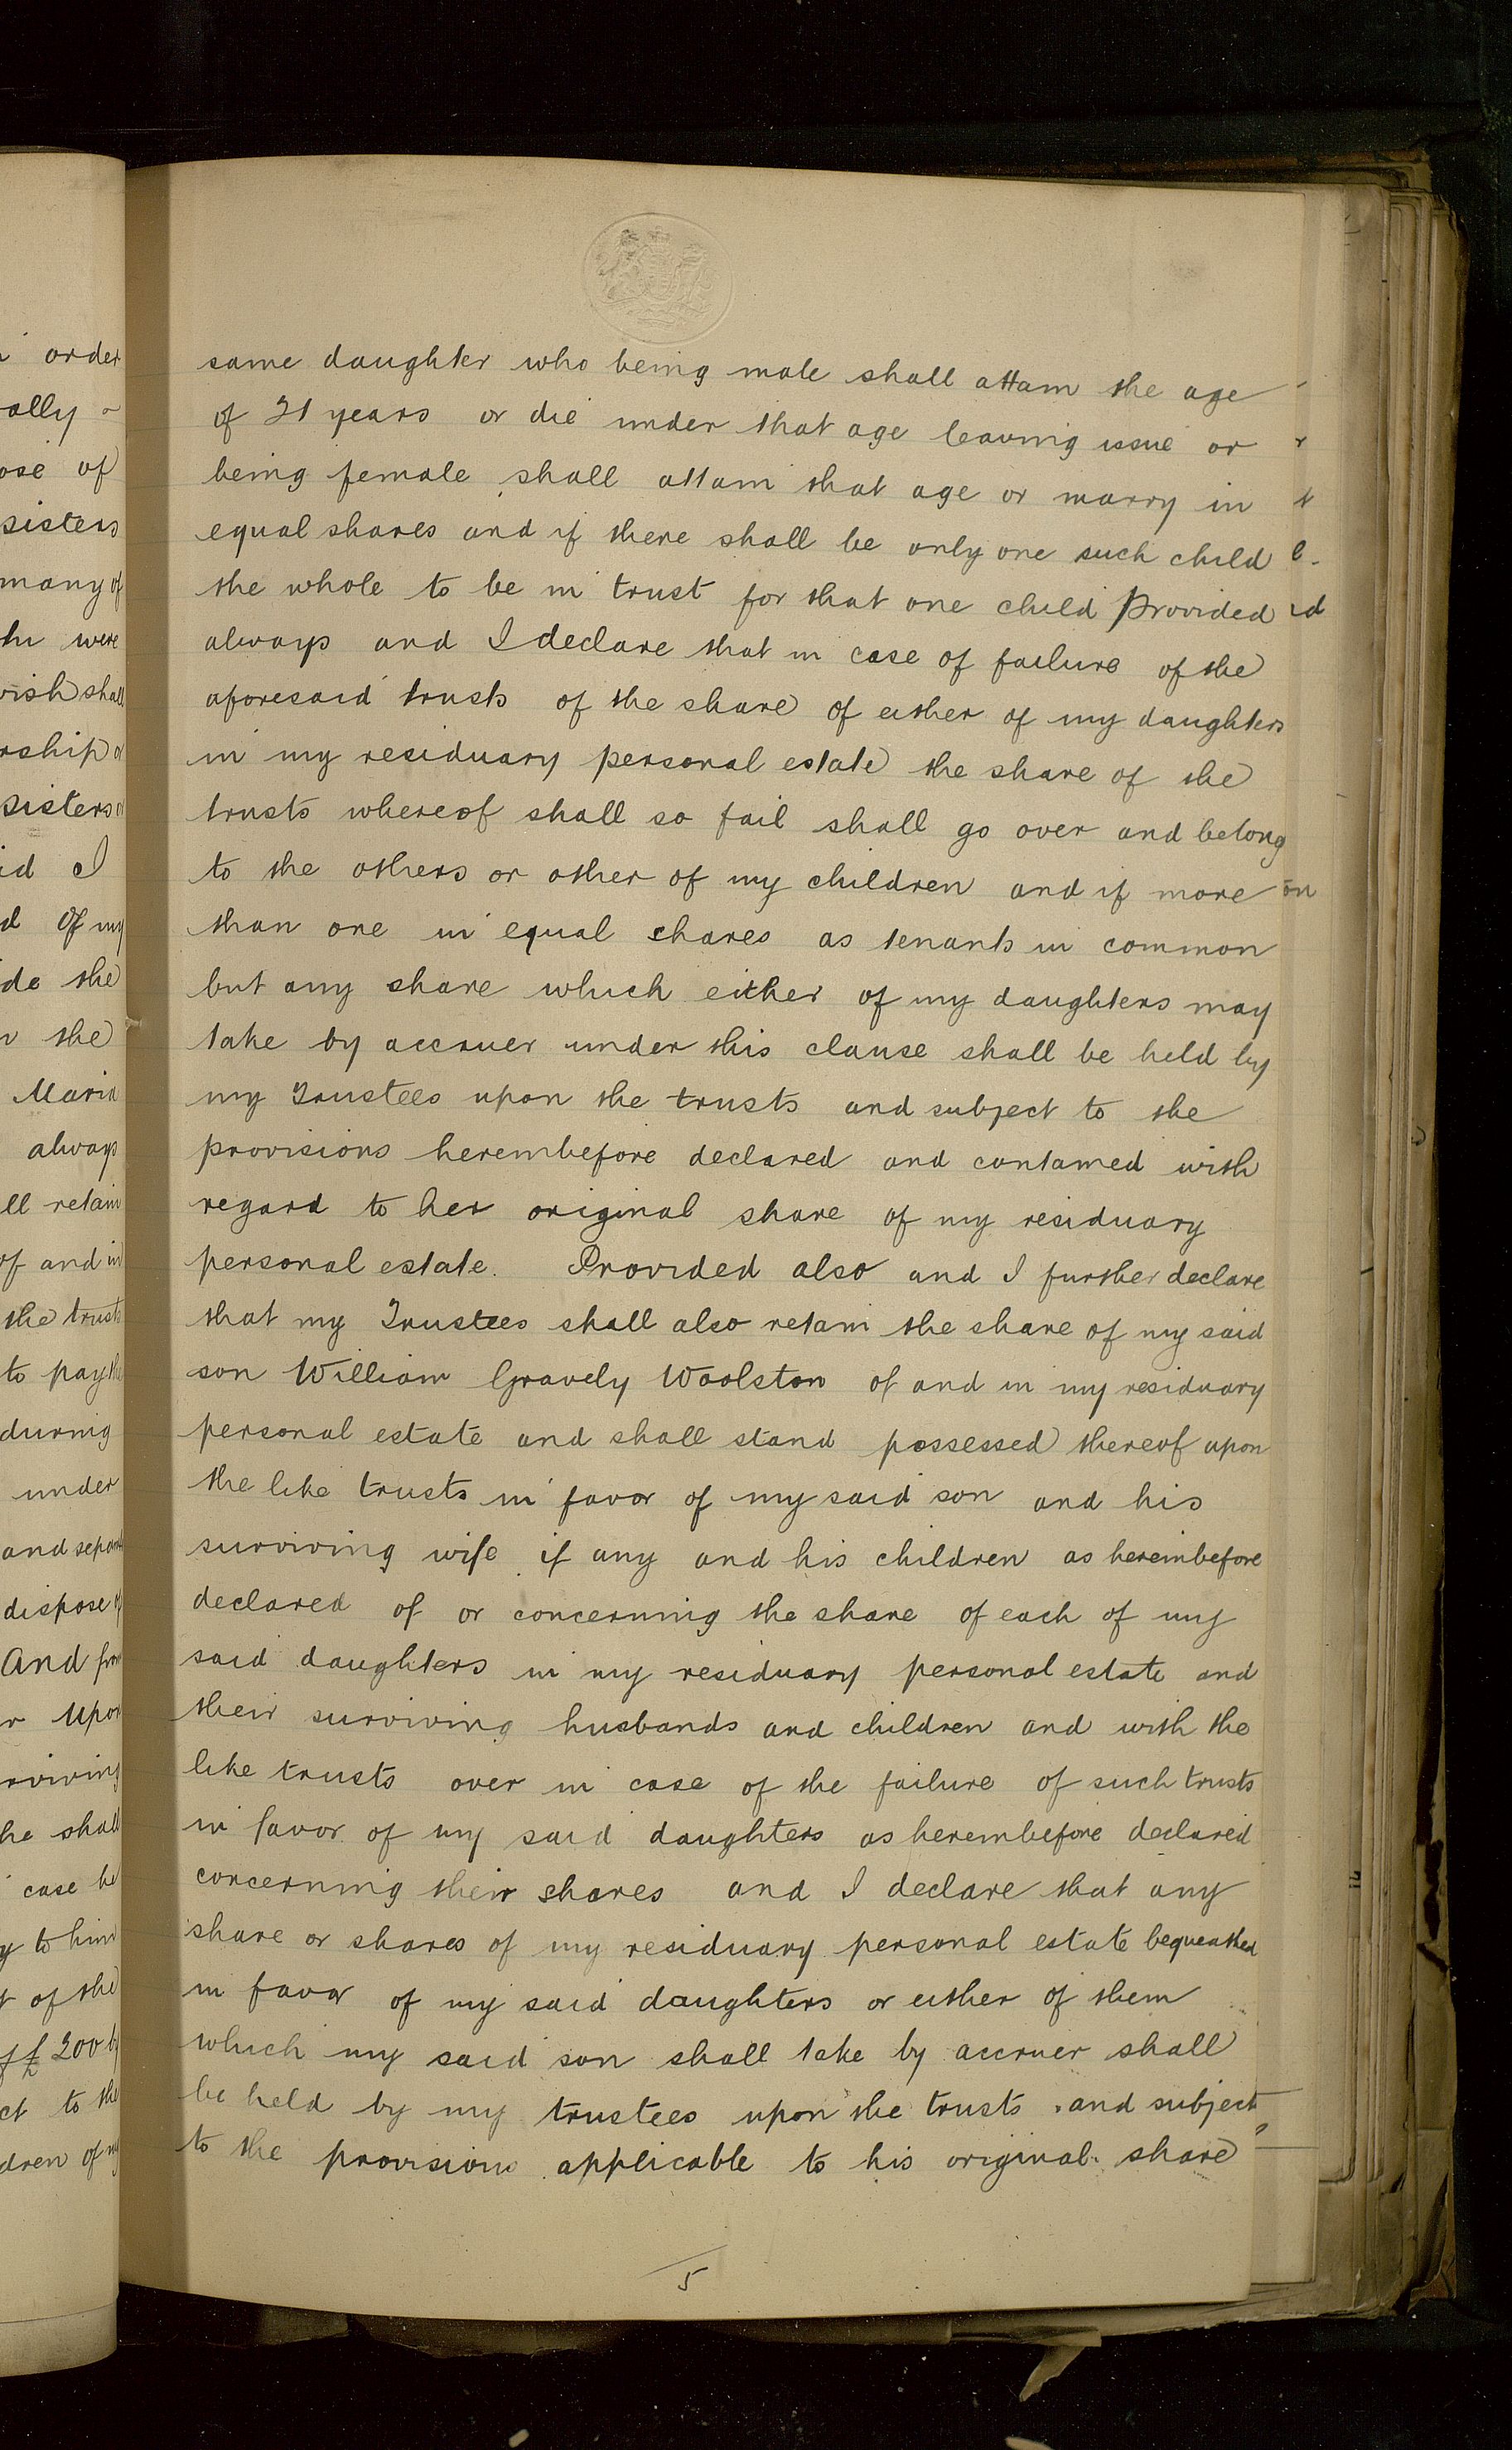 order
ally
ose of
sisters
many of
were
ish shall
rship
sisters
id I
d of my
de the
the
Maria
always
ll retain
of and in
the trusts
to pay the
during
under
and separate
dispose of
And from
upon
rviving
he shall
case he
y to him
of the
£200 by
ct to the
dren of my
same daughter who being male shall attain the age
of 21 years or die under that age leaving issue or
being female shall attain that age or marry in
equal shares and if there shall be only one such child
the whole to be in trust for that one child Provided
always and I declare that in case of failure of the
aforesaid trusts of the share of either of my daughters
in my residuary personal estate the share of the
trusts whereof shall so fail shall go over and belong
to the others or other of my children and if more
than one in equal shares as tenants in common
but any share which either of my daughters may
take by accruer under this clause shall be held by
my Trustees upon the trusts and subject to the
provisions hereinbefore declared and contained with
regard to her original share of my residuary
personal estate. Provided also and I further declare
that my Trustees shall also retain the share of my said
son William Gravely Woolston of and in my residuary
personal estate and shall stand possessed thereof upon
the like trusts in favor of my said son and his
surviving wife if any and his children as hereinbefore
declared of or concerning the share of each of my
said daughters in my residuary personal estate and
their surviving husbands and children and with the
like trusts over in case of the failure of such trusts
in favor of my said daughters as hereinbefore declared
concerning their shares and I declare that any
share or shares of my residuary personal estate bequeathed
in favor of my said daughters or either of them
which my said son shall take by accruer shall
be held by my trustees upon the trusts and subject
to the provisions applicable to his original share
5